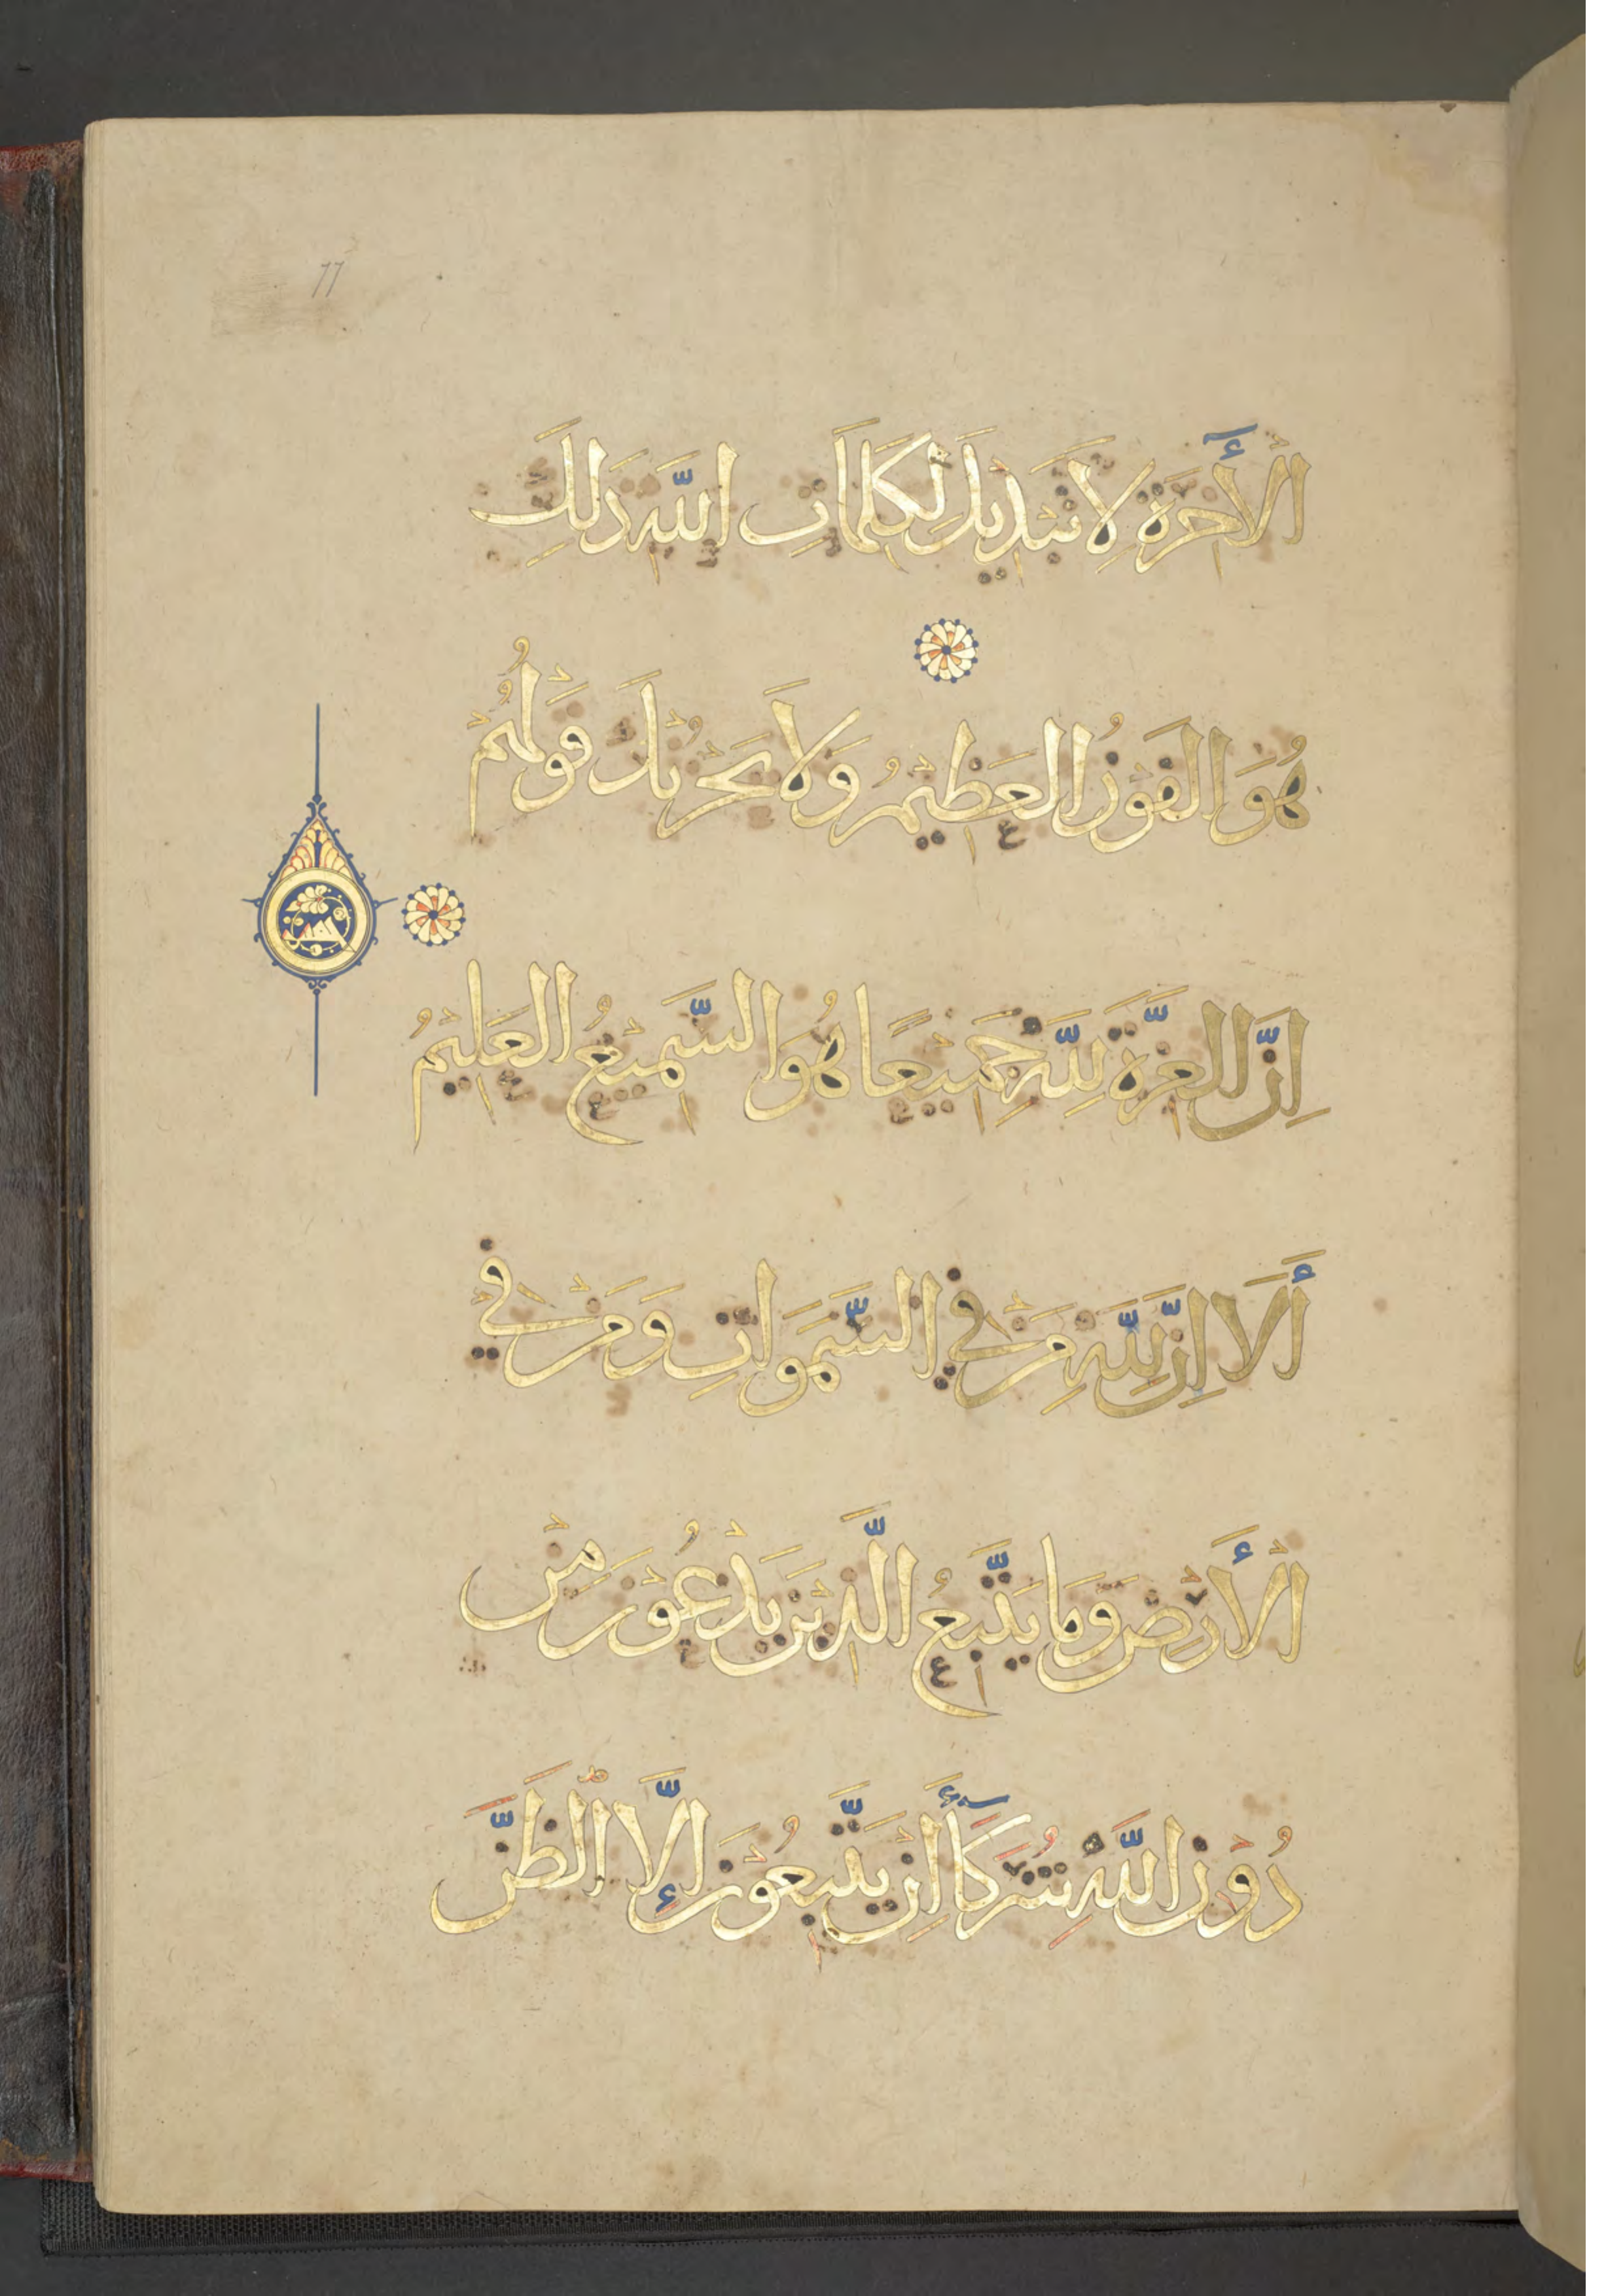 77
الْأَخِرَةِ لَا تَبْدِيلَ لِكَلِمَاتِ اللَّهِ ذَلِكَ
هُوَ الْفَوْزُ الْعَظِيْمُ وَلَا يَحْزُنْكَ قَوْلُهُمْ
اِنَّ الْعِزَّةَ لِلَّهِ جَمِيْعًا هُوَ السَّمِيْعُ الْعَلِيْمُ
أَلَا اِنَّ لِلَّهِ مَنْ فِي السَّمَوَاتِ وَمَنْ فِي
الْأَرْضِ وَمَا يَتَّبِعُ الَّذِيْنَ يَدْعُوْنَ مِنْ
دُوْنِ اللَّهِ شُرَكَاءَ اِنْ يَتَّبِعُوْنَ إِلَّا الظَّنَّ